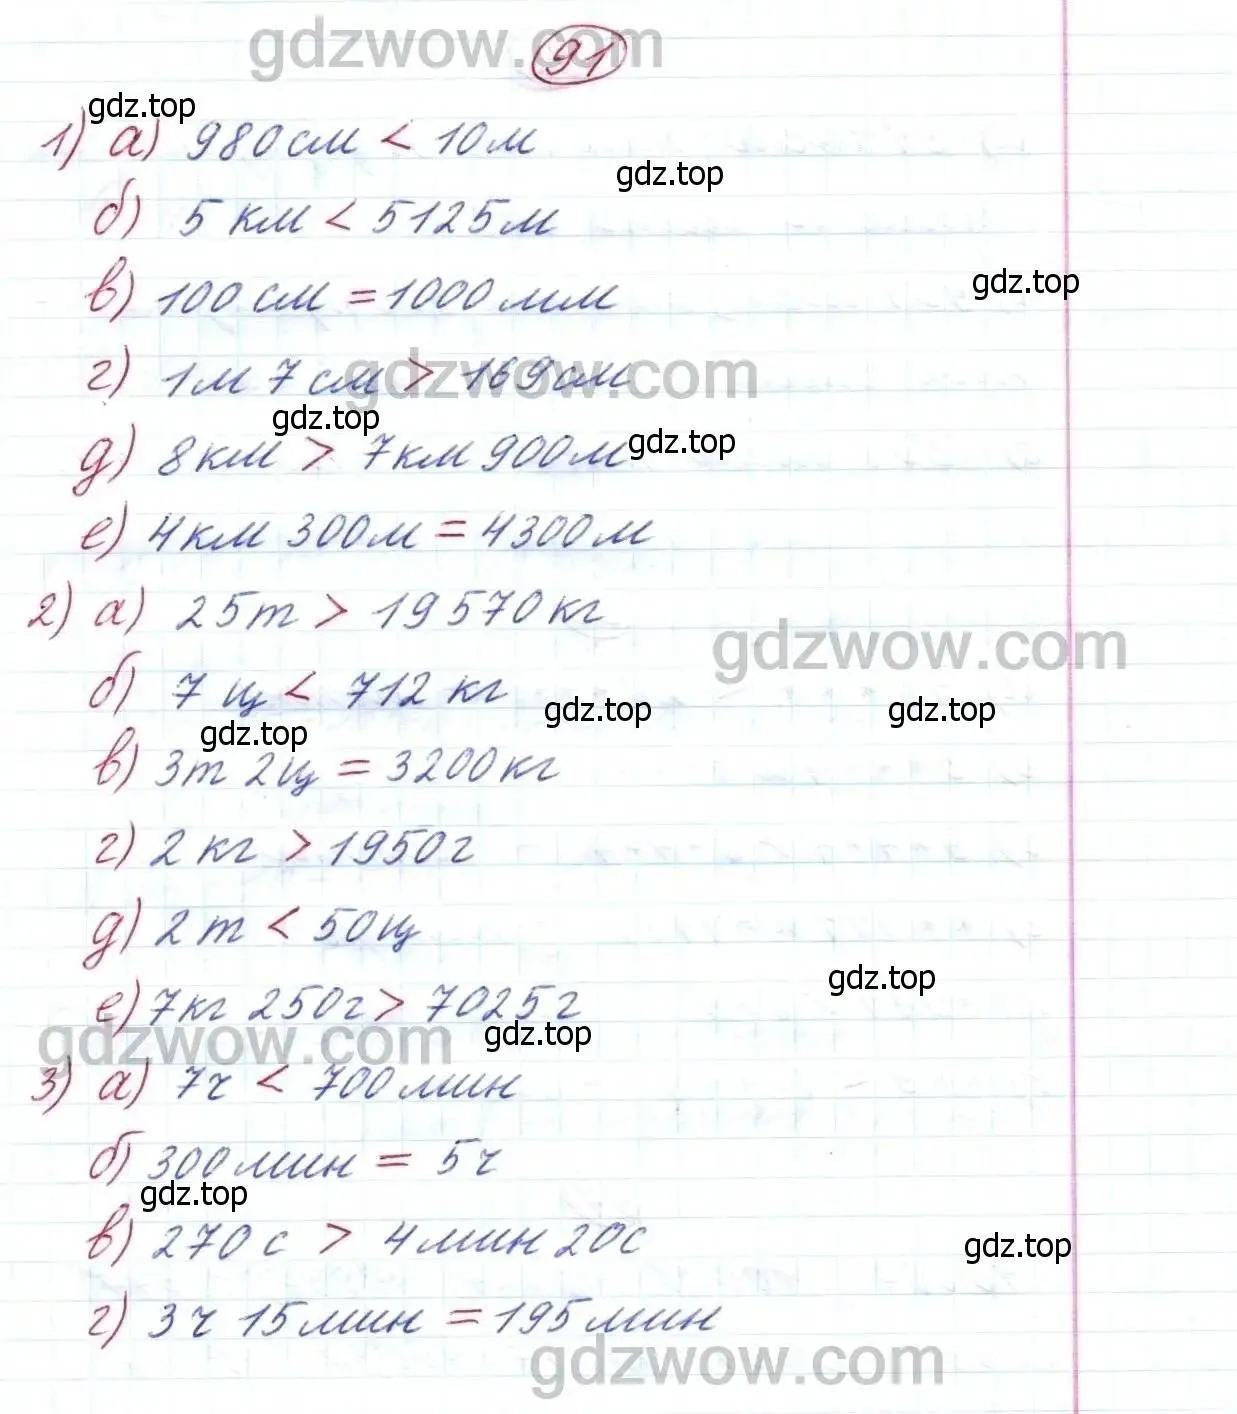 gdzwow.com
91
gdz.top
1) а) 980 см < 10 м
gdz.top
б) 5 км < 5125 м
gdz.top
в) 100 см = 1000 мм
г) 1 м 7 см > 169 см
gdzwow.com
gdz.top
gdz.top
д) 8 км > 7 км 900 м
е) 4 км 300 м = 4300 м
2) а) 25 т > 19 570 кг
gdzwow.com
б) 7 ц < 712 кг
gdz.top
gdz.top
gdz.top
в) 3 т 2 ц = 3200 кг
г) 2 кг > 1950 г
д) 2 т < 50 ц
gdz.top
е) 7 кг 250 г > 7025 г
gdz.top
gdzwow.com
3) а) 7 ч < 700 мин
б) 300 мин = 5 ч
gdz.top
в) 270 с > 4 мин 20 с
gdz.top
г) 3 ч 15 мин = 195 мин
gdzwow.com